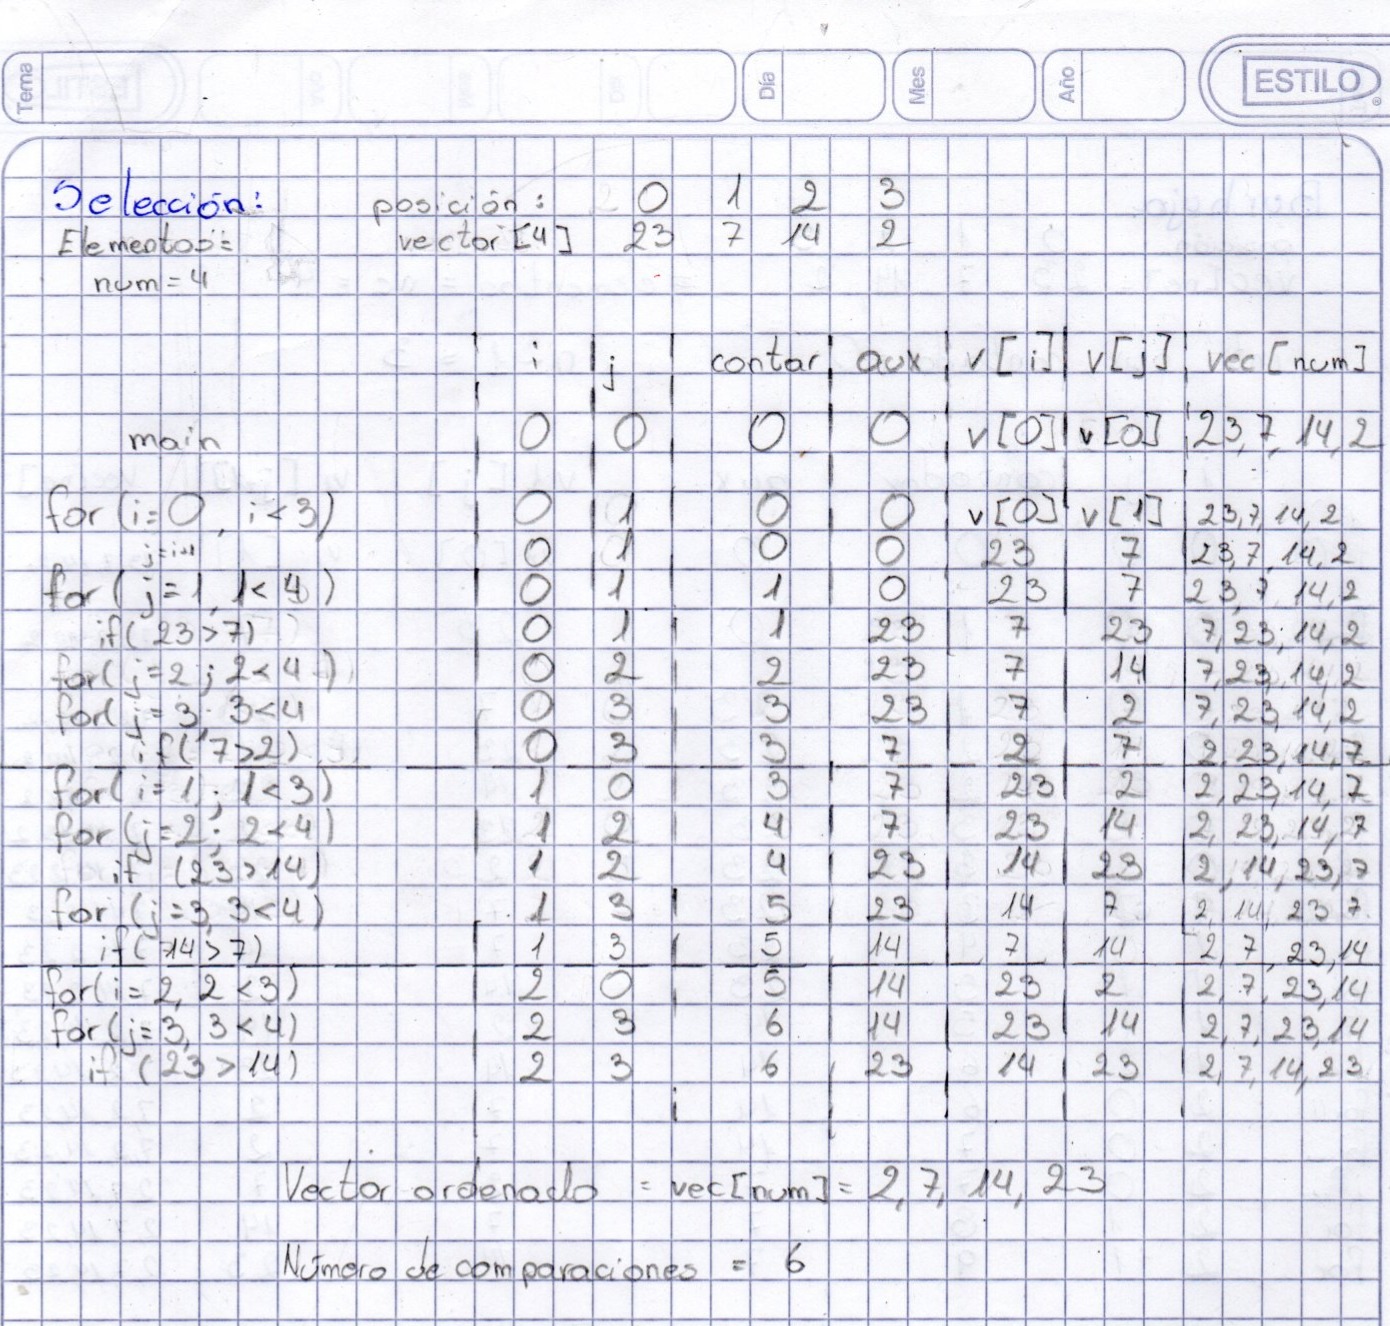 Tema Día Mes Año ESTILO
Selección: posición: 0 1 2 3
Elementos: vector [4] 23 7 14 2
num=4
i j contar aux v[i] v[j] vec[num]
main 0 0 0 0 v[0] v[0] 23,7,14,2
for (i=0, i<3) 0 1 0 0 v[0] v[1] 23,7,14,2
j=i+1 0 1 0 0 23 7 23,7,14,2
for (j=1, 1<4) 0 1 1 0 23 7 23,7,14,2
if(23>7) 0 1 1 23 7 23 7,23,14,2
for(j=2; 2<4) 0 2 2 23 7 14 7,23,14,2
for(j=3; 3<4 0 3 3 23 7 2 7,23,14,2
if(7>2) 0 3 3 7 2 7 2,23,14,7
for(i=1; 1<3) 1 0 3 7 23 2 2,23,14,7
for (j=2; 2<4) 1 2 4 7 23 14 2,23,14,7
if (23>14) 1 2 4 23 14 23 2,14,23,7
for (j=3,3<4) 1 3 5 23 14 7 2,14,23 7
if(14>7) 1 3 5 14 7 14 2,7,23,14
for(i=2, 2<3) 2 0 5 14 23 2 2,7,23,14
for(j=3, 3<4) 2 3 6 14 23 14 2,7,23,14
if (23>14) 2 3 6 23 14 23 2,7,14,23
Vector ordenado = vec[num]= 2,7,14,23
Número de comparaciones = 6